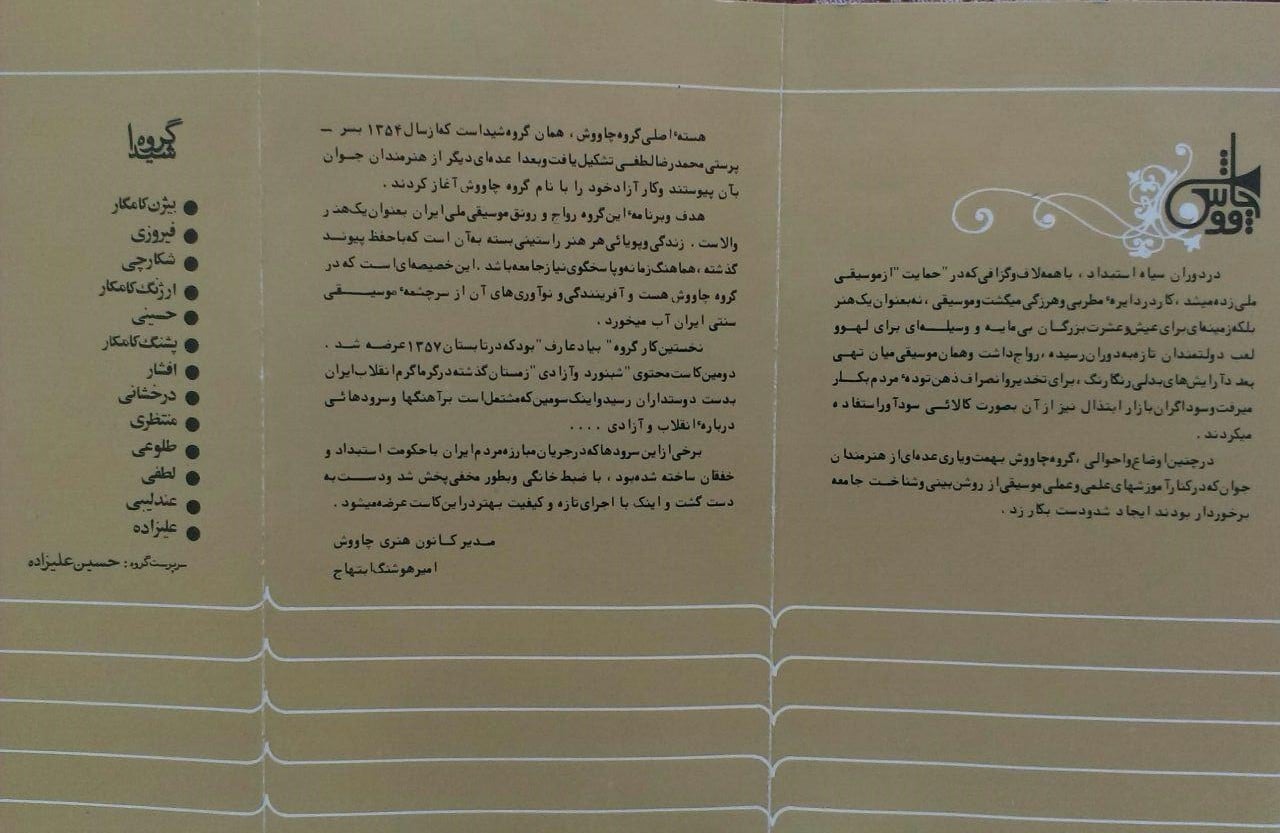 چاووش
در دوران سیاه استبداد ، با همه لاف و گزافی که در "حمایت" از موسیقی
ملی زده میشد ، کار در دایرهٔ مطربی و هرزگی میگشت و موسیقی ، نه بعنوان یک هنر
بلکه زمینه‌ای برای عیش و عشرت بزرگان بی‌مایه و وسیله‌ای برای لهو و
لعب دولتمندان تازه به دوران رسیده ، رواج داشت و همان موسیقی میان تهی
بعد د آرایش‌های بدلی رنگارنگ ، برای تخدیر و انصراف ذهن تودهٔ مردم بکار
میرفت و سوداگران بازار ابتذال نیز از آن بصورت کالائی سودآور استفاده
میکردند .
در چنین اوضاع و احوالی ، گروه چاووش بهمت و یاری عده‌ای از هنرمندان
جوان که در کنار آموزشهای علمی و عملی موسیقی از روشن‌بینی و شناخت جامعه
برخوردار بودند ایجاد شد و دست بکار زد .
هستهٔ اصلی گروه چاووش ، همان گروه شیداست که از سال ۱۳۵۴ بسر -
پرستی محمدرضا لطفی تشکیل یافت و بعدا عده‌ای دیگر از هنرمندان جوان
بآن پیوستند و کار آزاد خود را با نام گروه چاووش آغاز کردند .
هدف و برنامهٔ این گروه رواج و رونق موسیقی ملی ایران بعنوان یک هنر
والاست . زندگی و پویائی هر هنر راستینی بسته به آن است که با حفظ پیوند
گذشته ، هماهنگ زمانه و پاسخگوی نیاز جامعه باشد . این خصیصه‌ای است که در
گروه چاووش هست و آفرینندگی و نوآوری‌های آن از سرچشمهٔ موسیقی
سنتی ایران آب میخورد .
نخستین کار گروه "بیاد عارف" بود که در تابستان ۱۳۵۷ عرضه شد .
دومین کاست محتوی "شبنورد و آزادی" زمستان گذشته در گرماگرم انقلاب ایران
بدست دوستداران رسید و اینک سومین که مشتمل است بر آهنگها و سرودهائی
دربارهٔ انقلاب و آزادی ....
برخی از این سرودها که در جریان مبارزه مردم ایران با حکومت استبداد و
خفقان ساخته شده بود ، با ضبط خانگی و بطور مخفی پخش شد و دست به
دست گشت و اینک با اجرای تازه و کیفیت بهتر در این کاست عرضه میشود .
مدیر کانون هنری چاووش
امیر هوشنگ ابتهاج
گروه شیدا
بیژن کامکار
فیروزی
شکارچی
ارژنگ کامکار
حسینی
پشنگ کامکار
افشار
درخشانی
منتظری
طلوعی
لطفی
عندلیبی
علیزاده
سرپرست گروه : حسین علیزاده